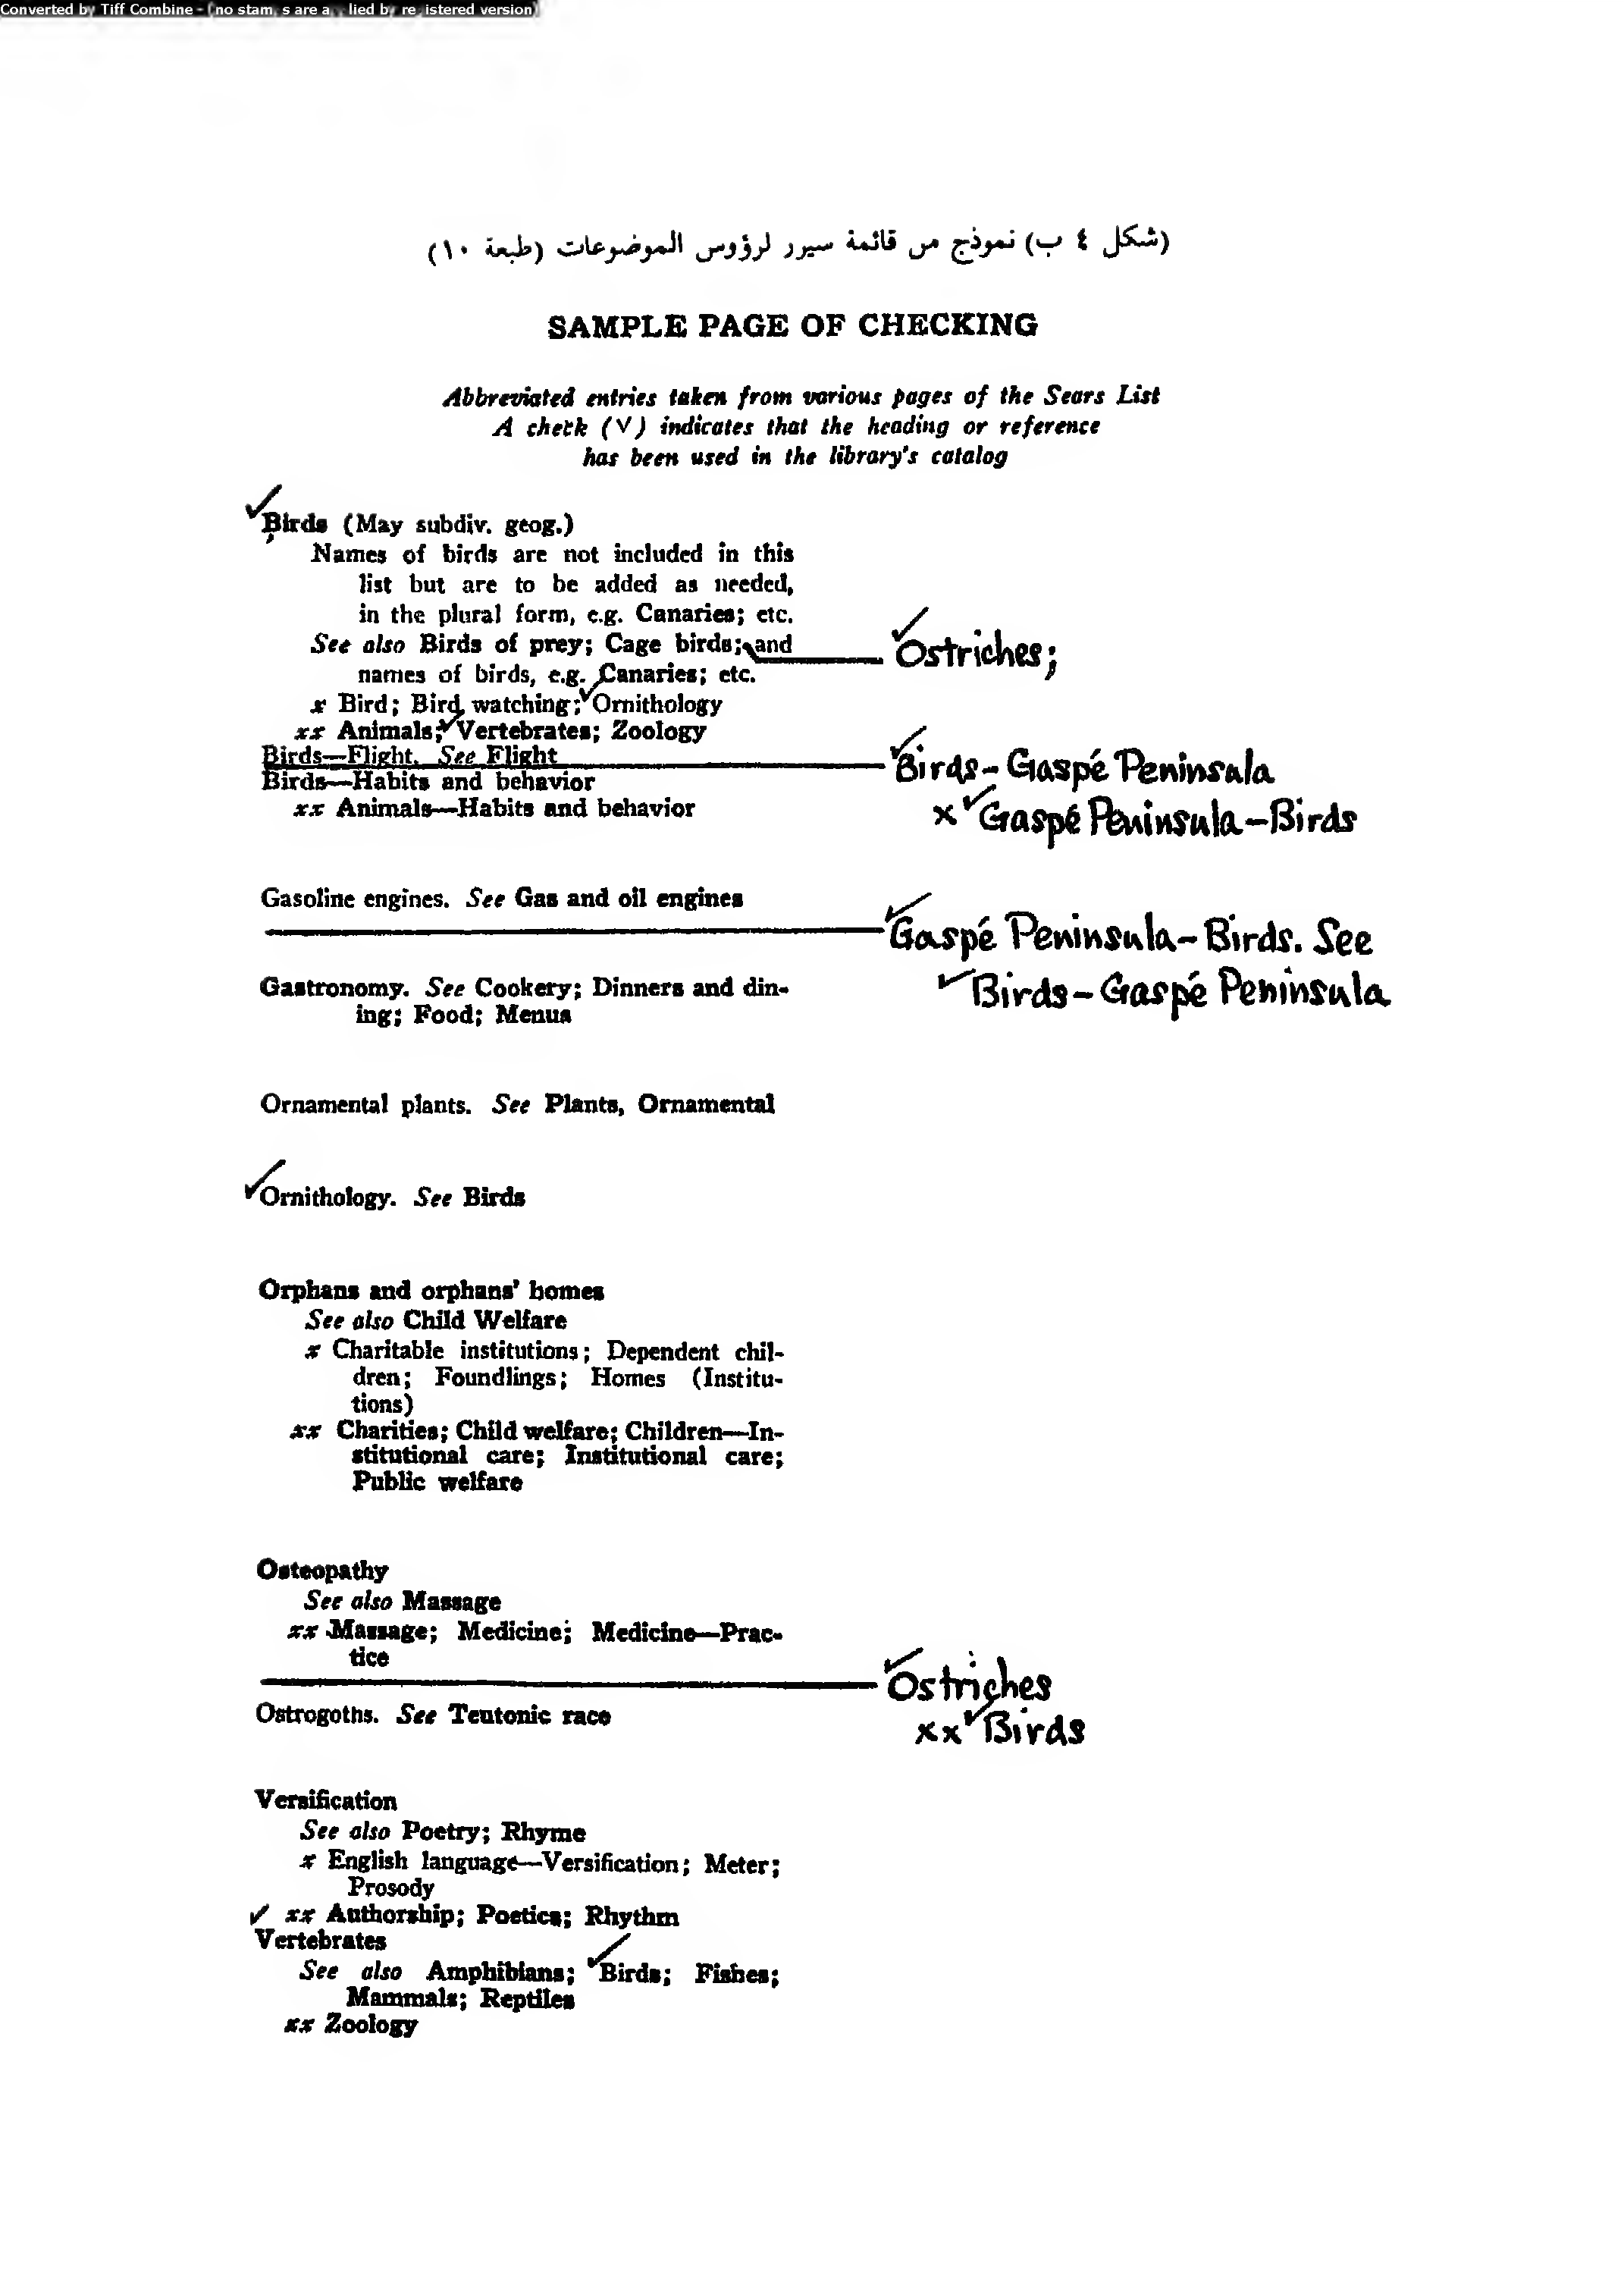 Converted by Tiff Combine - (no stamps are applied by registered version)
(شكل ٤ ب) نموذج من قائمة سيرر لرؤوس الموضوعات (طبعة ١٠)
SAMPLE PAGE OF CHECKING
Abbreviated entries taken from various pages of the Sears List
A check (√) indicates that the heading or reference
has been used in the library's catalog
✓Birds (May subdiv. geog.)
Names of birds are not included in this
list but are to be added as needed,
in the plural form, e.g. Canaries; etc.
See also Birds of prey; Cage birds; and
✓Ostriches;
names of birds, e.g. Canaries; etc.
x Bird; Bird watching; ✓Ornithology
xx Animals; ✓Vertebrates; Zoology
Birds—Flight. See Flight
✓Birds-Gaspé Peninsula
Birds—Habits and behavior
x ✓Gaspé Peninsula-Birds
xx Animals—Habits and behavior
Gasoline engines. See Gas and oil engines
✓Gaspé Peninsula-Birds. See
✓Birds-Gaspé Peninsula
Gastronomy. See Cookery; Dinners and din-
ing; Food; Menus
Ornamental plants. See Plants, Ornamental
✓Ornithology. See Birds
Orphans and orphans' homes
See also Child Welfare
x Charitable institutions; Dependent chil-
dren; Foundlings; Homes (Institu-
tions)
xx Charities; Child welfare; Children—In-
stitutional care; Institutional care;
Public welfare
Osteopathy
See also Massage
xx Massage; Medicine; Medicine—Prac-
tice
✓Ostriches
xx ✓Birds
Ostrogoths. See Teutonic race
Versification
See also Poetry; Rhyme
x English language—Versification; Meter;
Prosody
✓ xx Authorship; Poetics; Rhythm
Vertebrates
See also Amphibians; ✓Birds; Fishes;
Mammals; Reptiles
xx Zoology